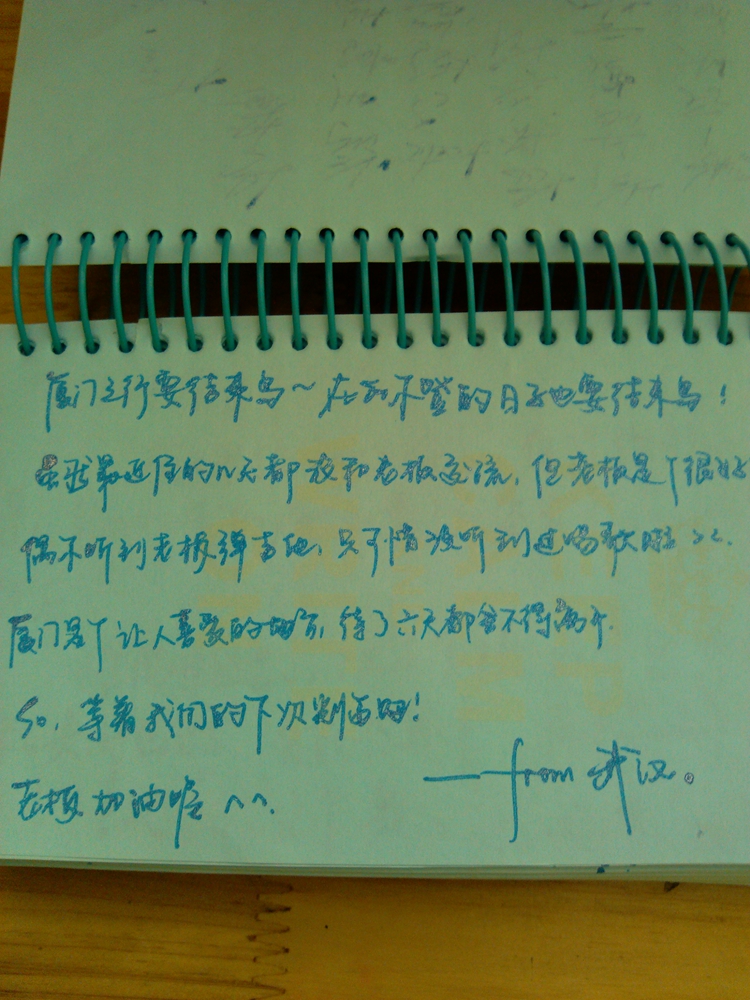 厦门之行要结束鸟~在加不登的日子也要结束鸟!
虽然最近住的几天都没和老板交流,但老板是个很好
偶尔听到老板弹吉他,只可惜没听到过唱歌啦
厦门是个让人喜爱的地方,待了六天都舍不得离开.
So,等着我们的下次到访吧!
老板加油喔 ^^.
——from 武汉。